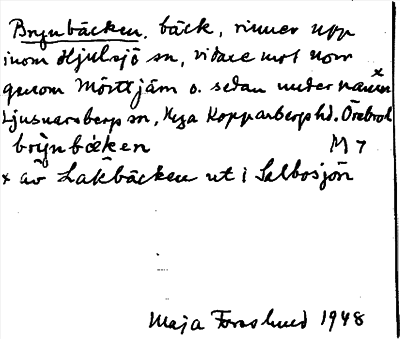 Brynbäcken, bäck, rinner upp
inom Hjulsjö sn, vidare mot norr
genom Mörttjärn o. sedan under namn x
Ljusnarsbergs sn, Nya Kopparbergs hd. Örebro l.
brỳnbäken M 7
x av Lakbäcken ut i Salbosjön
Maja Forslund 1948